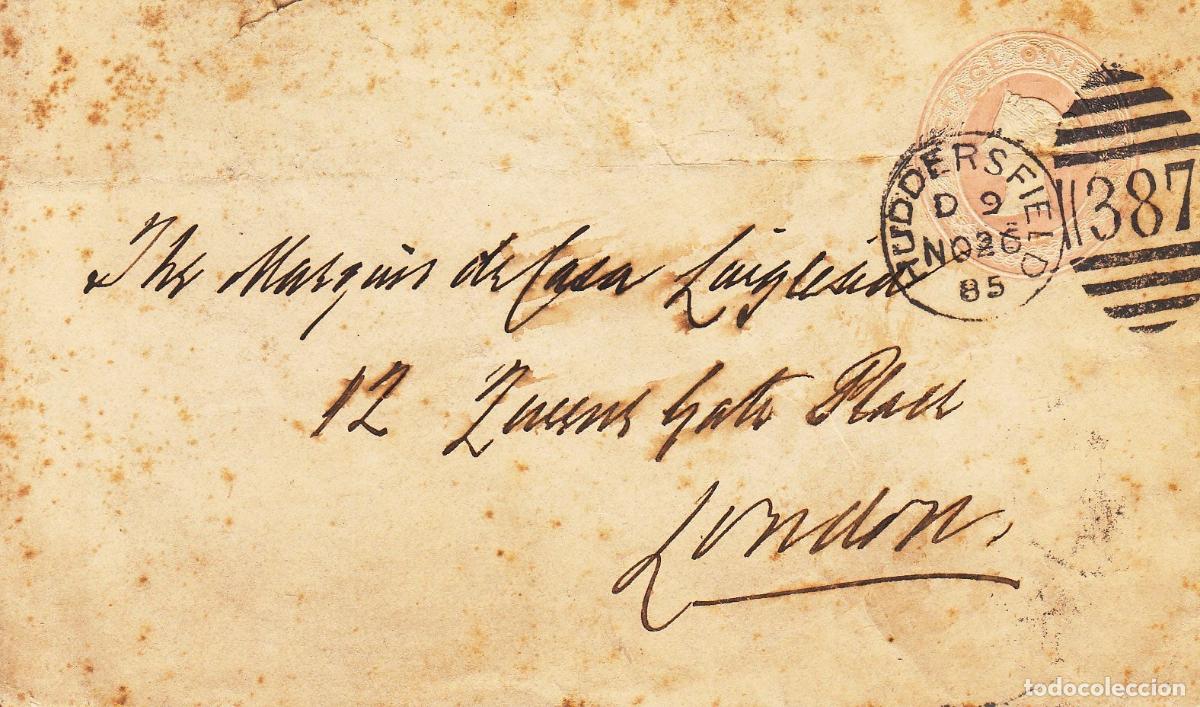 AGE ONE
HUDDERSFIELD
D 9
NO 26
85
387
The Marquis de Casa Luiglesia
12 Queens Gate Place
London.
todocoleccion